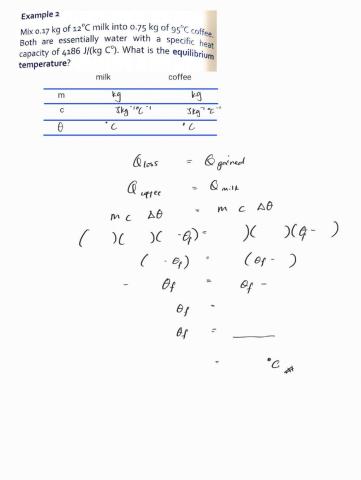 Example 2
Mix 0.17 kg of 12°C milk into 0.75 kg of 95°C coffee.
Both are essentially water with a specific heat
capacity of 4186 J/(kg C°). What is the equilibrium
temperature?
milk coffee
m kg kg
c Jkg⁻¹°C⁻¹ Jkg⁻¹°C⁻¹
θ °C °C
Q loss = Q gained
Q coffee = Q milk
m c Δθ = m c Δθ
( )( )( -θf) = ( )( )(θf - )
( -θf) = (θf - )
- θf = θf -
θf =
θf = ____
= °C